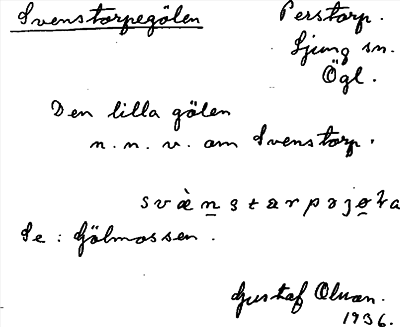 Svenstorpegölen
Perstorp.
Ljung sn.
Ögl.
Den lilla gölen
n. n. v. om Svenstorp.
Se : Gölmossen.
Gustaf
1936.